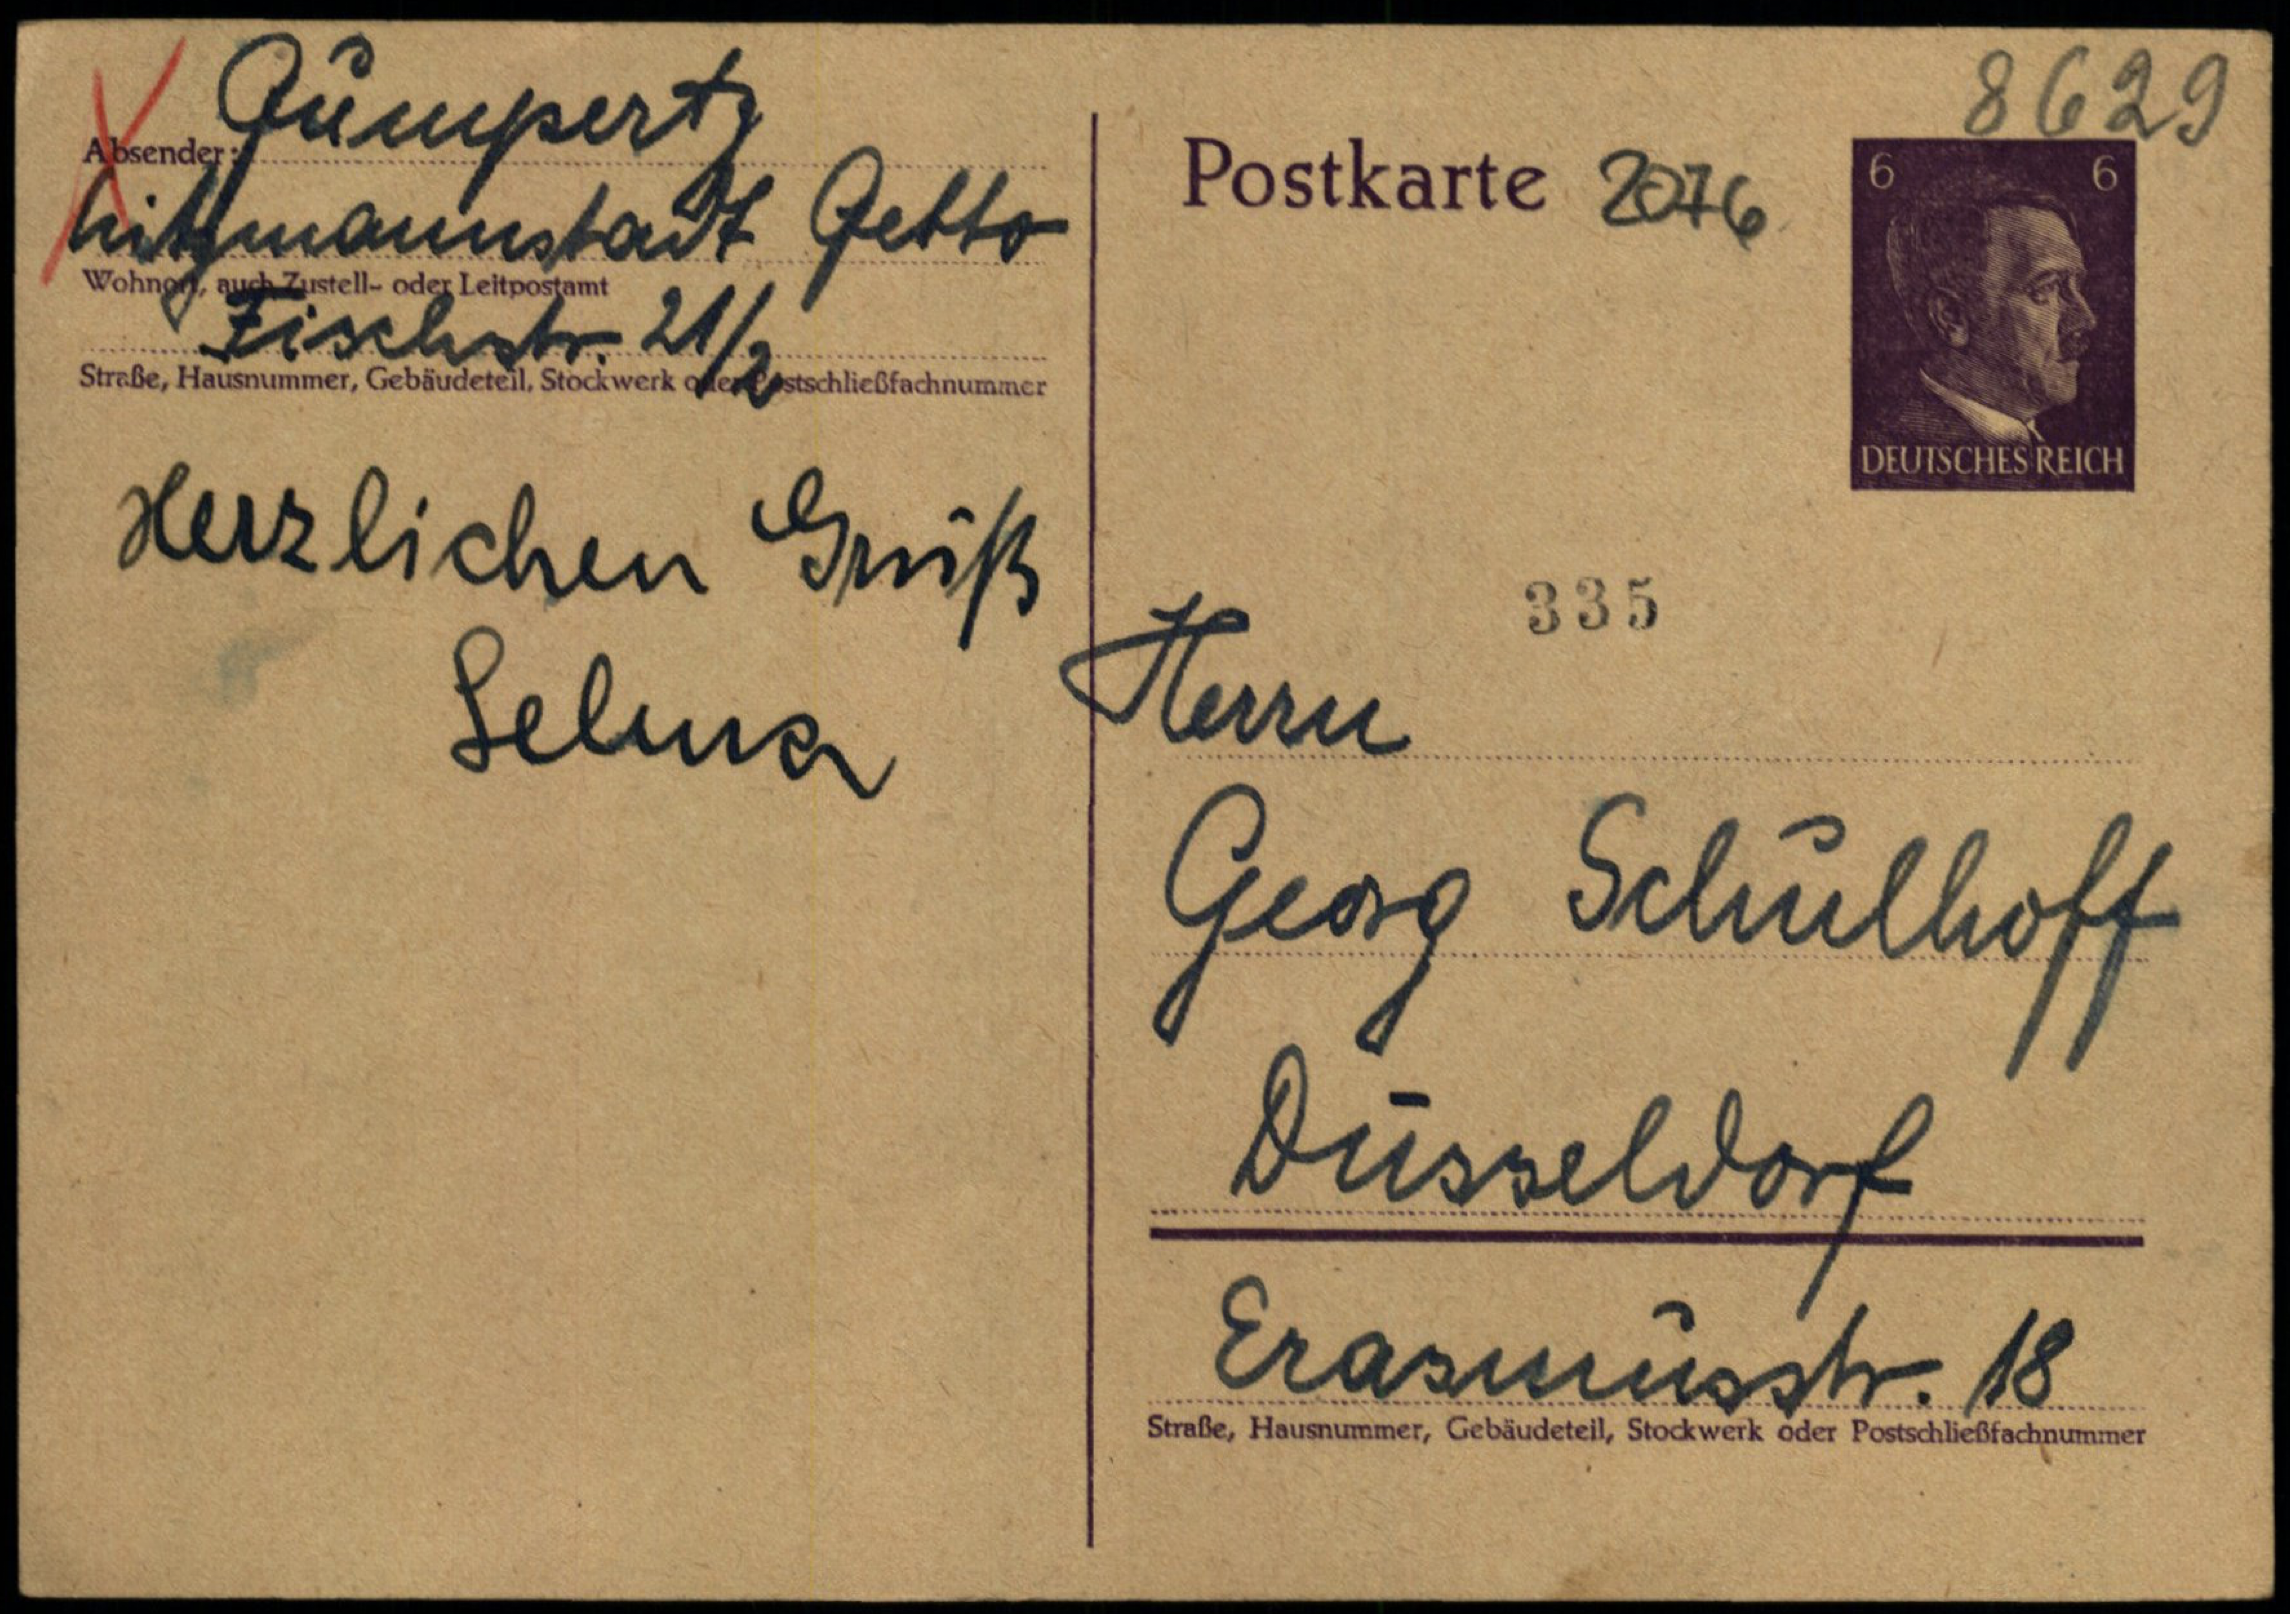 Gumpertz
Absender:
Litzmannstadt Getto
Wohnort, auch Zustell- oder Leitpostamt
Fischstr. 21/2
Straße, Hausnummer, Gebäudeteil, Stockwerk oder Postschließfachnummer
Herzlichen Gruß
Selma
8629
Postkarte 2076
6 6
DEUTSCHES REICH
335
Herrn
Georg Schulhoff
Düsseldorf
Erasmusstr. 18
Straße, Hausnummer, Gebäudeteil, Stockwerk oder Postschließfachnummer